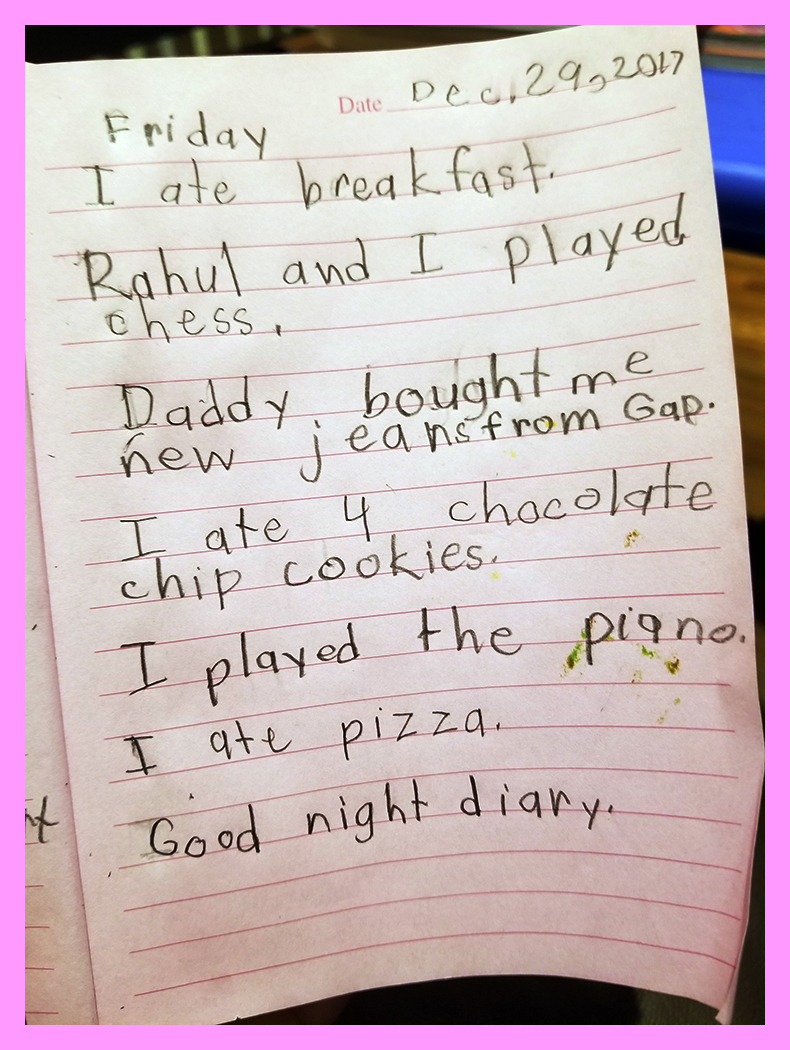 Date Dec. 29, 2017
Friday
I ate breakfast.
Rahul and I played
chess.
Daddy bought me
new jeans from Gap.
I ate 4 chocolate
chip cookies.
I played the piano.
I ate pizza.
Good night diary.